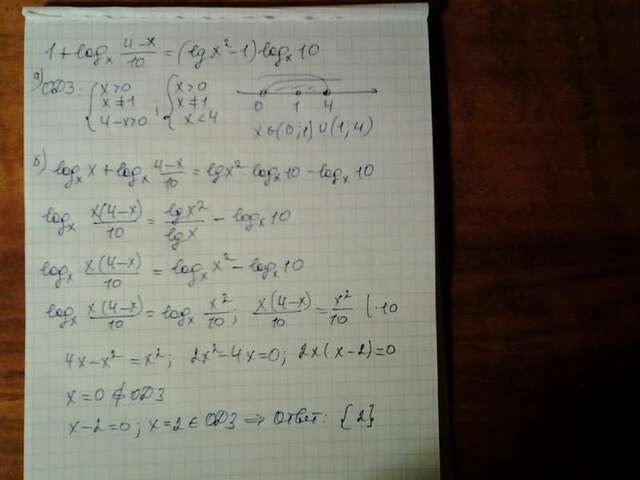 1 + log_x (4-x)/10 = (lg x² - 1) log_x 10
а) ОДЗ: { x>0 ; { x>0 0 1 4
x≠1 x≠1
4-x>0 x<4 x ∈ (0;1) ∪ (1;4)
б) log_x x + log_x (4-x)/10 = lg x² · log_x 10 - log_x 10
log_x x(4-x)/10 = lg x²/lg x - log_x 10
log_x x(4-x)/10 = log_x x² - log_x 10
log_x x(4-x)/10 = log_x x²/10 ; x(4-x)/10 = x²/10 | ·10
4x - x² = x² ; 2x² - 4x = 0 ; 2x(x-2) = 0
x = 0 ∉ ОДЗ
x - 2 = 0 ; x = 2 ∈ ОДЗ ⇒ Ответ: {2}